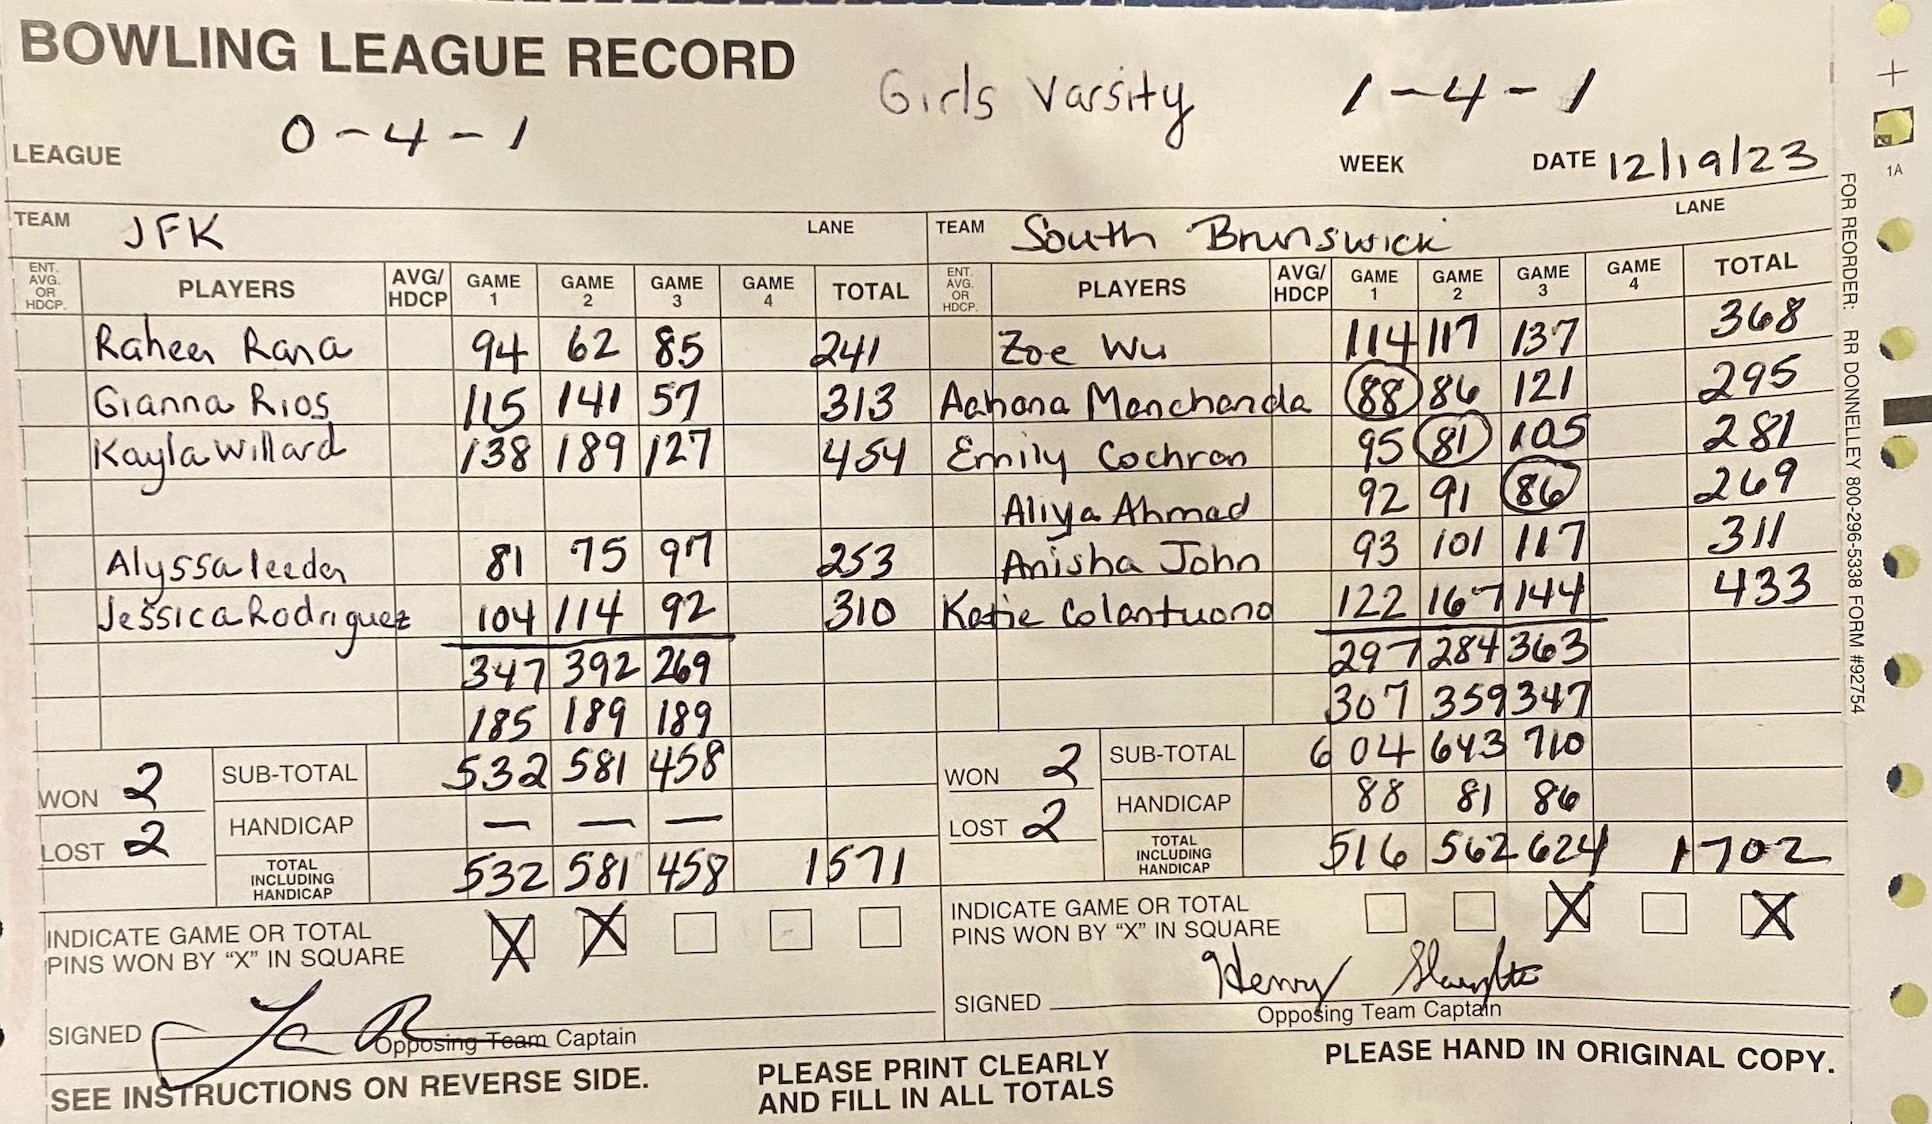 BOWLING LEAGUE RECORD
Girls Varsity
0-4-1
1-4-1
LEAGUE
WEEK
DATE 12/19/23
TEAM JFK LANE
TEAM South Brunswick LANE
ENT. AVG. OR HDCP. PLAYERS AVG/HDCP GAME 1 GAME 2 GAME 3 GAME 4 TOTAL
ENT. AVG. OR HDCP. PLAYERS AVG/HDCP GAME 1 GAME 2 GAME 3 GAME 4 TOTAL
Raheen Rana 94 62 85 241
Zoe Wu 114 117 137 368
Gianna Rios 115 141 57 313
Aahana Manchanda 88 86 121 295
Kayla Willard 138 189 127 454
Emily Cochran 95 81 105 281
Aliya Ahmad 92 91 86 269
Alyssa leeder 81 75 97 253
Anisha John 93 101 117 311
Jessica Rodriguez 104 114 92 310
Katie Colantuono 122 167 144 433
347 392 269
297 284 363
185 189 189
307 359 347
WON 2 SUB-TOTAL 532 581 458
WON 2 SUB-TOTAL 604 643 710
LOST 2 HANDICAP — — —
LOST 2 HANDICAP 88 81 86
TOTAL INCLUDING HANDICAP 532 581 458 1571
TOTAL INCLUDING HANDICAP 516 562 624 1702
INDICATE GAME OR TOTAL X X
PINS WON BY "X" IN SQUARE
INDICATE GAME OR TOTAL X X
PINS WON BY "X" IN SQUARE
SIGNED
Opposing Team Captain
SIGNED Henry
Opposing Team Captain
SEE INSTRUCTIONS ON REVERSE SIDE.
PLEASE PRINT CLEARLY
AND FILL IN ALL TOTALS
PLEASE HAND IN ORIGINAL COPY.
FOR REORDER: RR DONNELLEY 800-296-5338 FORM #92754
1A